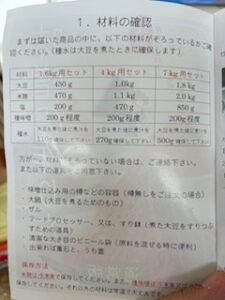 1．材料の確認
まずは届いた商品の中に、以下の材料がそろっているかご確
認ください。（種水は大豆を煮たときに確保します）
材料 1.6kg用セット 4kg用セット 7kg用セット
大豆 450g 1.0kg 1.8kg
米麹 470 1.1kg 2.0kg
塩 200g 470g 850g
種味噌 200g程度 200g程度 200g程度
種水 大豆を煮た後に煮汁を110g確保 大豆を煮た後に煮汁を270g確保 大豆を煮た後に煮汁を500g確保
万が一、材料がそろっていない場合は、ご連絡下さい。
また以下の道具をご用意下さい。
・味噌仕込み用の樽などの容器（樽無しをご注文の場合）
・大鍋（大豆を煮るためのもの）
・ザル
・フードプロセッサー、又は、すり鉢（煮た大豆をすりつぶ
すための道具）
・清潔な大き目のビニール袋（原料を混ぜる時に便利）
・出来れば重石と、うち蓋
保存方法
米麹は冷凍庫で保存してください。また、種味噌は冷凍又は冷蔵で保存
してください。それ以外の材料は常温で大丈夫です。